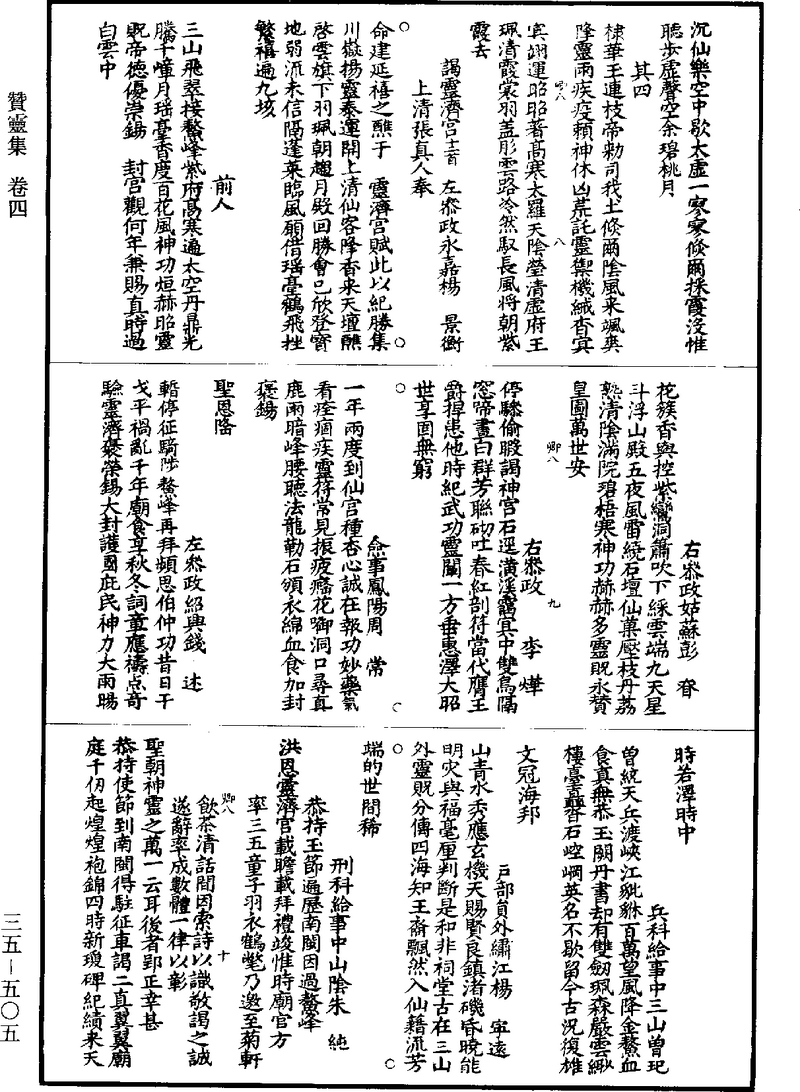 贊靈集 卷四
三五-五〇五
沉仙樂空中歇太虛一寥寥倏爾採霞沒惟
聽步虛聲空余碧桃月
其四
棣華王連枝帝勑司我土倏爾陰風来颯爽
降靈雨疾疫頼神休凶荒託靈禦機緘杳冥
卿八
八
㝠翊運昭昭著髙寒太羅天陰瑩清虛府王
珮清霞裳羽盖彤雲路冷然馭長風将朝紫
霞去
謁靈濟宮 左叅政永嘉楊 景衡
上清張真人奉
命建延禧之醮于 靈濟宮賦此以紀勝集
川嶽揚靈泰運開上清仙客降香来天壇醮
啓雲旗下羽珮朝趨月殿回勝會已欣登寳
地弱流未信隔蓬萊臨風願借瑶臺鶴飛挫
繁禧遍九垓
前人
三山飛翠接鰲峰紫府髙寒逼太空丹鼎光
騰千嶂月瑶臺香度百花風神功烜赫昭靈
貺帝德優崇錫 封宮觀何年兼賜直時過
白雲中
右叅政姑蘇彭 㫪
花簇香輿控紫鸞洞簫吹下綵雲端九天星
斗浮山殿五夜風雷繞石壇仙菓壓枝丹荔
熟清陰滿院碧梧寒神功赫赫多靈貺永贊
皇圖萬世安
卿八
九
右叅政 李 燁
停驂偷暇謁神宮石逕潢溪靄㝠中雙鳥隔
窓啼晝白群芳聯砌吐春紅剖符當代膺王
爵捍患他時紀武功靈闡一方垂惠澤大昭
世享固無窮
僉事鳳陽周 常
一年兩度到仙宮種杏心誠在報功妙藥氣
看痊痼疾靈符常見振疲癃花啣洞口尋真
鹿雨暗峰腰聽法龍勒石頌衣綿血食加封
褒錫
聖恩隆
左叅政紹興錢 述
暫停征騎陟鰲峰再拜頻思伯仲功昔日干
戈平禍亂千年廟食享秋冬詞童應禱点奇
驗靈濟褒榮錫大封護國庇民神力大雨暘
時若澤時中
兵科給事中三山曾玘
曽統天兵渡峽江貔貅百萬望風降金鰲血
食真無忝玉闕丹書却有雙劒珮森嚴雲緲
樓臺矗矗石崆峒英名不歇留今古況復雄
文冠海邦
戸部貟外繡江楊 寕逺
山青水秀應玄機天賜賢良鎮渚磯昏曉能
明灾與福毫厘判断是和非祠堂古在三山
外靈貺分傳四海知王斋飄然入仙籍流芳
端的世間稀
刑科給事中山陰朱 純
恭持玉節遍歴南閩因過鰲峰
洪恩靈濟宮載瞻載拜禮竣惟時廟官方
率三五童子羽衣鶴氅乃邀至菊軒
卿八
十
飲茶清話間因索詩以識敬謁之誠
遂辭率成數體一律以彰
聖朝神靈之萬一云耳後者郢正幸甚
恭持使節到南閩得駐征車謁二真翼翼廟
庭千仞起煌煌袍錦四時新瓊碑紀績来天